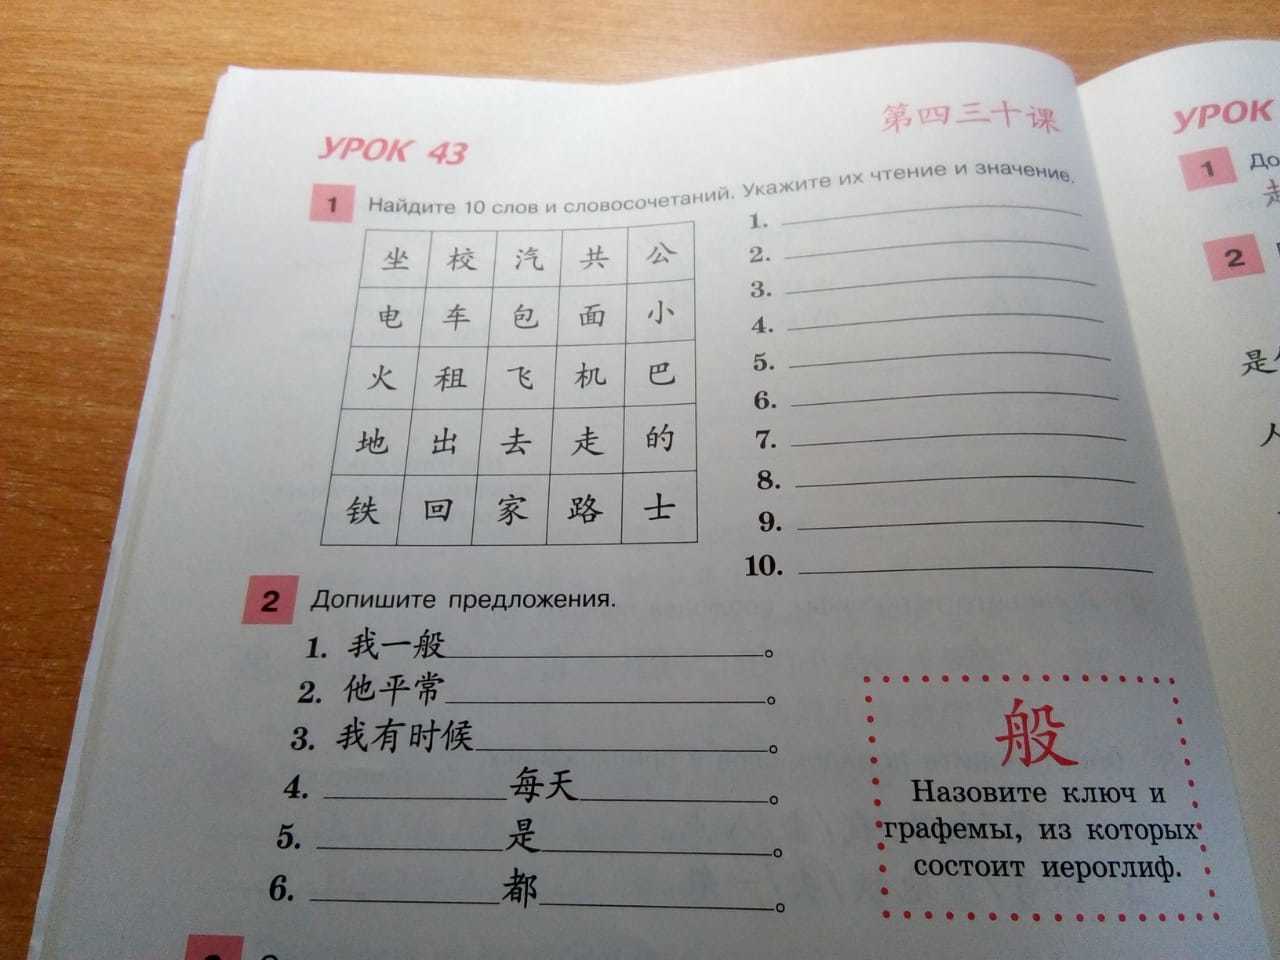 УРОК 43
第四三十课
1 Найдите 10 слов и словосочетаний. Укажите их чтение и значение.
坐 校 汽 共 公
电 车 包 面 小
火 租 飞 机 巴
地 出 去 走 的
铁 回 家 路 士
1.
2.
3.
4.
5.
6.
7.
8.
9.
10.
2 Допишите предложения.
1. 我一般。
2. 他平常。
3. 我有时候。
4. 每天。
5. 是。
6. 都。
般
Назовите ключ и
графемы, из которых
состоит иероглиф.
УРОК
1 До
2
是